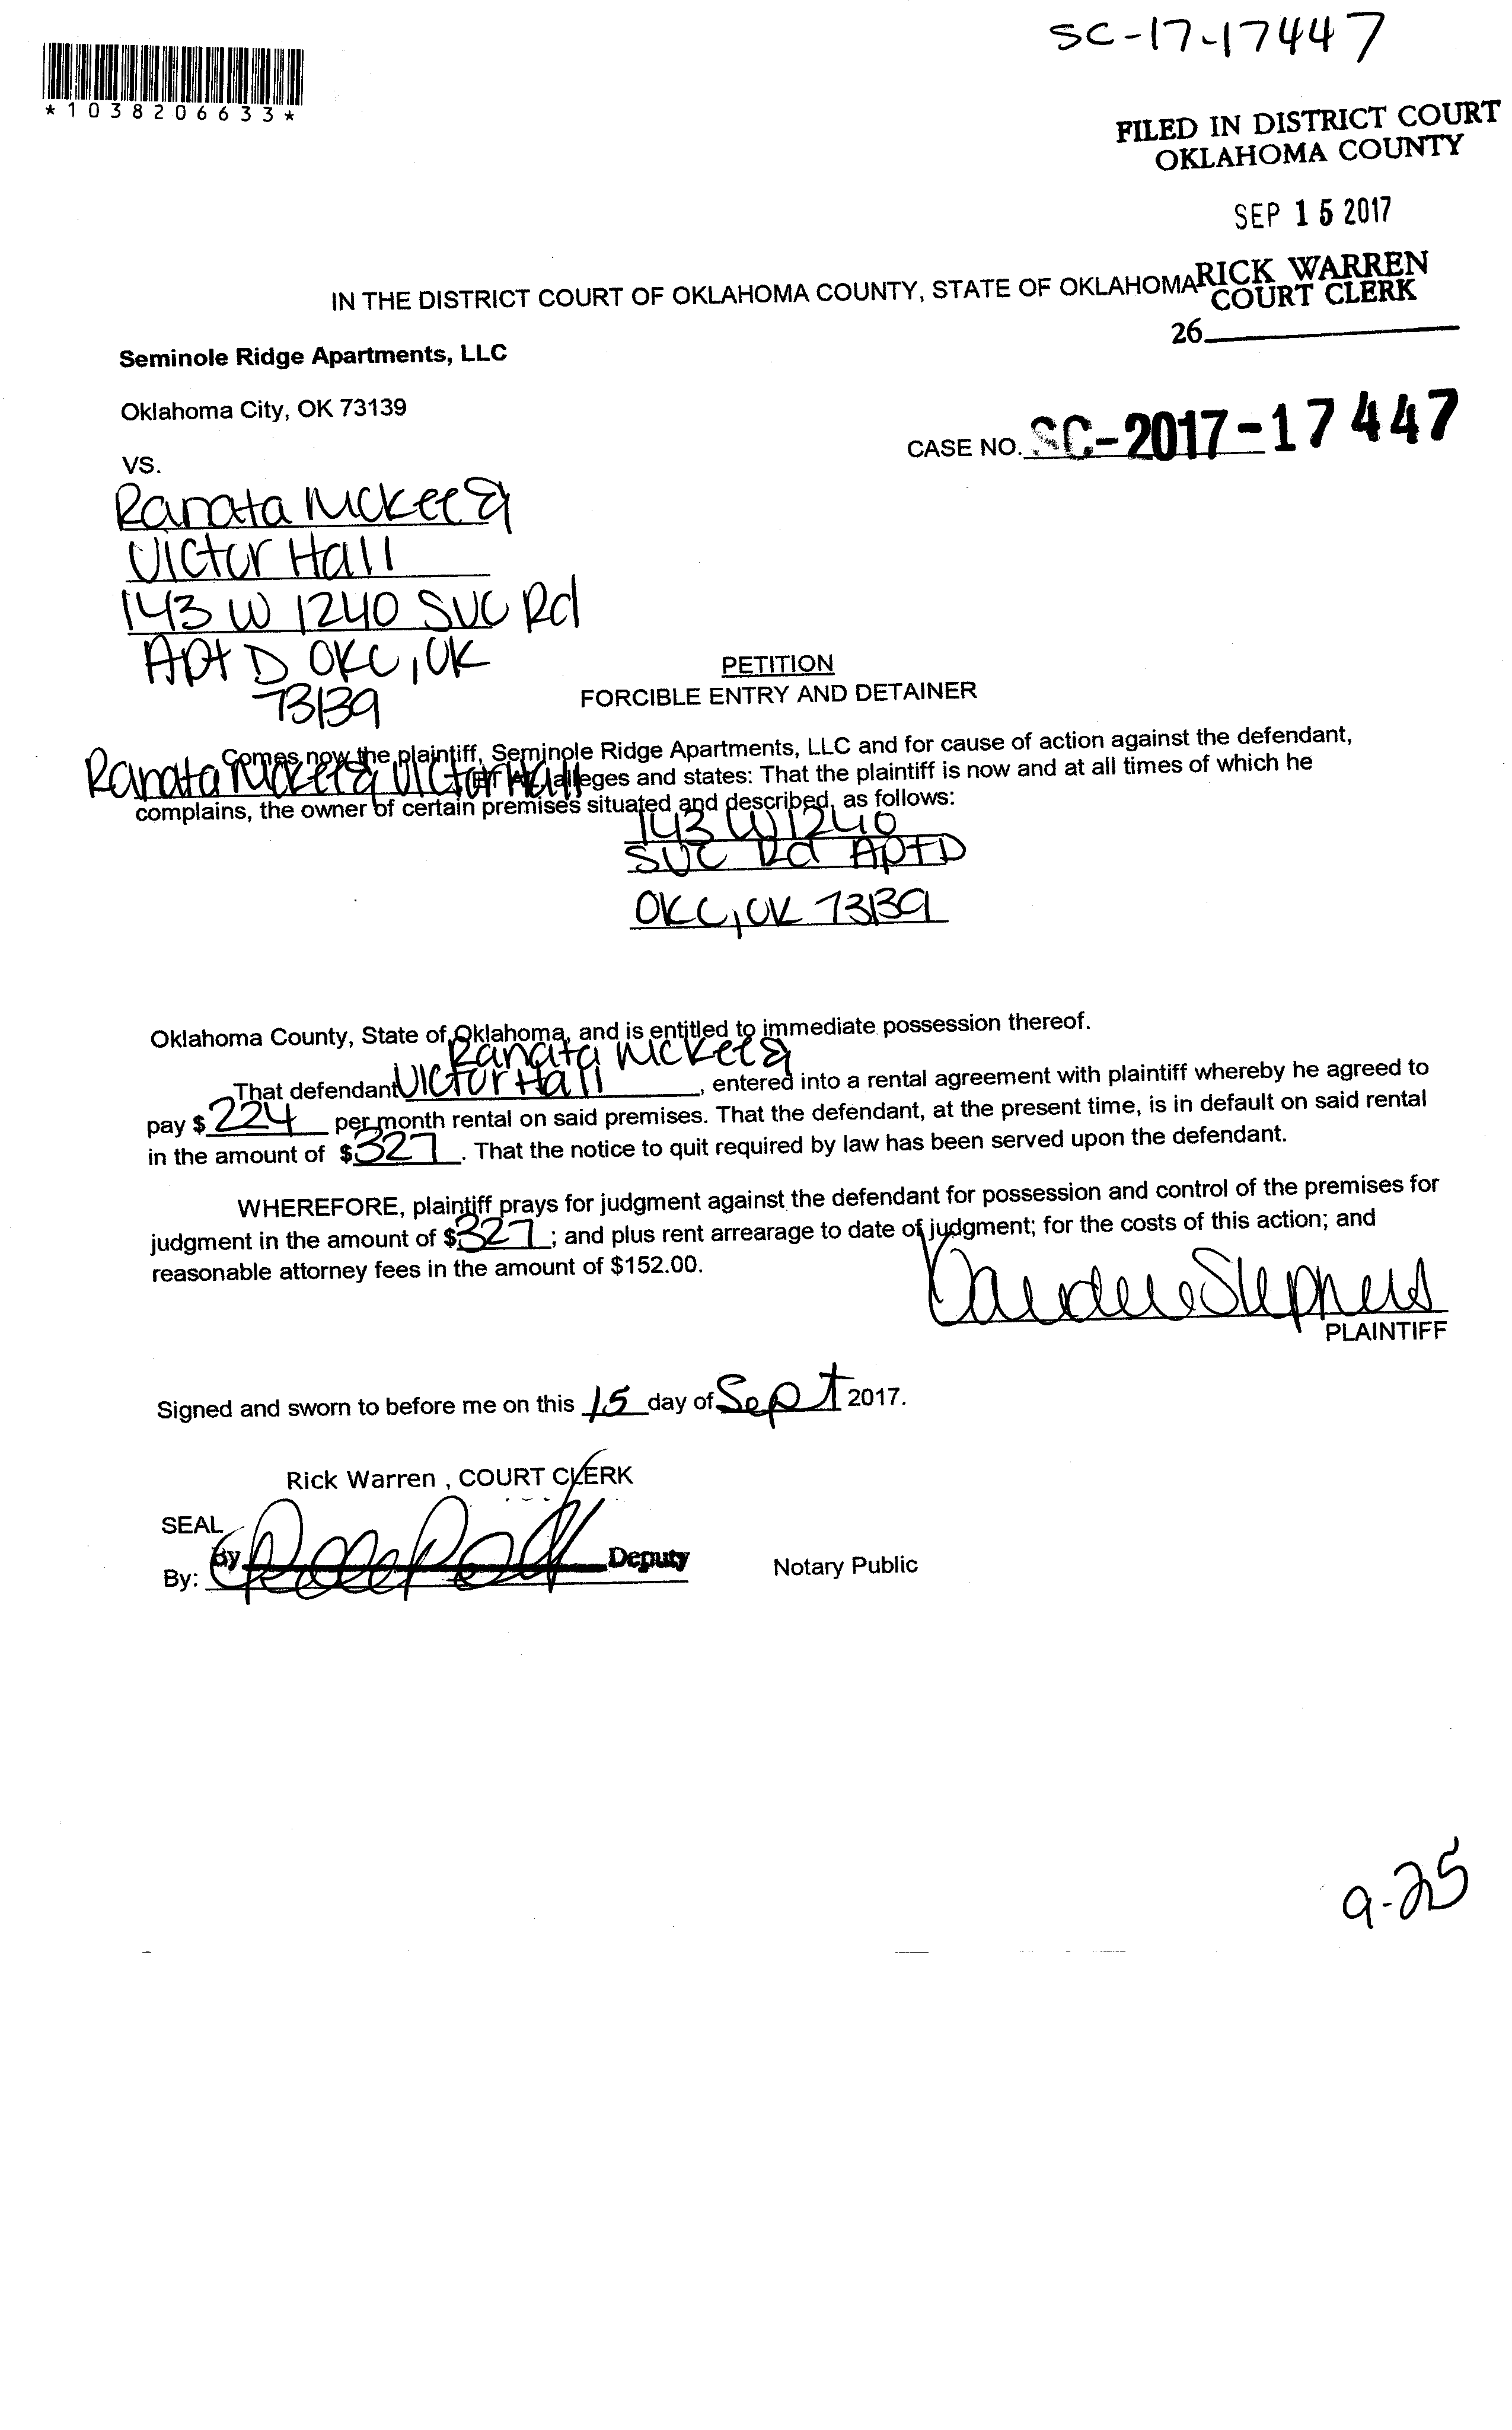 SC-17-17447
*1038206633*
FILED IN DISTRICT COURT
OKLAHOMA COUNTY
SEP 15 2017
RICK WARREN
COURT CLERK
26
IN THE DISTRICT COURT OF OKLAHOMA COUNTY, STATE OF OKLAHOMA
Seminole Ridge Apartments, LLC
Oklahoma City, OK 73139
CASE NO. SC-2017-17447
VS.
Ranata McKee &
Victor Hall
143 W I240 SVC Rd
Apt D OKC, OK
73139
PETITION
FORCIBLE ENTRY AND DETAINER
Comes now the plaintiff, Seminole Ridge Apartments, LLC and for cause of action against the defendant,
Ranata McKee & Victor Hall alleges and states: That the plaintiff is now and at all times of which he
complains, the owner of certain premises situated and described, as follows:
143 W I240
SVC Rd Apt D
OKC, OK 73139
Oklahoma County, State of Oklahoma, and is entitled to immediate possession thereof.
Ranata McKee &
That defendant Victor Hall, entered into a rental agreement with plaintiff whereby he agreed to
pay $ 224 per month rental on said premises. That the defendant, at the present time, is in default on said rental
in the amount of $ 327. That the notice to quit required by law has been served upon the defendant.
WHEREFORE, plaintiff prays for judgment against the defendant for possession and control of the premises for
judgment in the amount of $ 327; and plus rent arrearage to date of judgment; for the costs of this action; and
reasonable attorney fees in the amount of $152.00.
Stephens
PLAINTIFF
Signed and sworn to before me on this 15 day of Sept 2017.
Rick Warren , COURT CLERK
SEAL
By Deputy
By: Notary Public
9-25